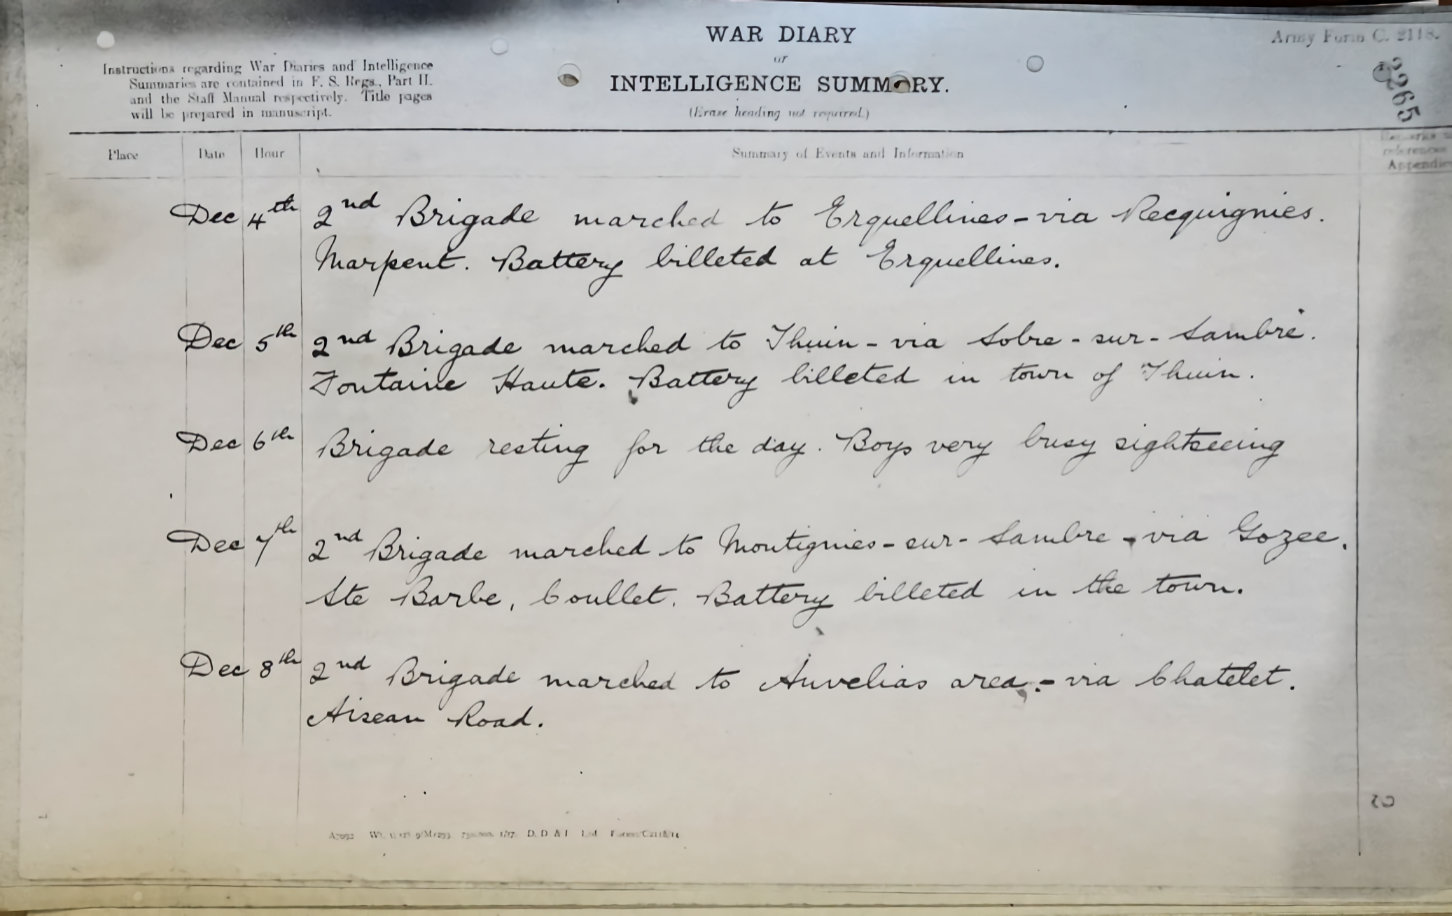 WAR DIARY
or
INTELLIGENCE SUMMARY.
(Erase heading not required.)
Army Form C. 2118.
2265
Instructions regarding War Diaries and Intelligence
Summaries are contained in F. S. Regs., Part II.
and the Staff Manual respectively. Title pages
will be prepared in manuscript.
Place Date Hour Summary of Events and Information
Remarks
references
Appendices
Dec 4th 2nd Brigade marched to Erquellines - via Recquignies.
Marpent. Battery billeted at Erquellines.
Dec 5th 2nd Brigade marched to Thuin - via Solre - sur - Sambre.
Fontaine Haute. Battery billeted in town of Thuin.
Dec 6th Brigade resting for the day. Boys very busy sightseeing
Dec 7th 2nd Brigade marched to Montignies - sur - Sambre - via Gozee.
Ste Barbe, Coullet. Battery billeted in the town.
Dec 8th 2nd Brigade marched to Auvelias area. - via Chatelet.
Aisean Road.
D. D. & L. Ltd.